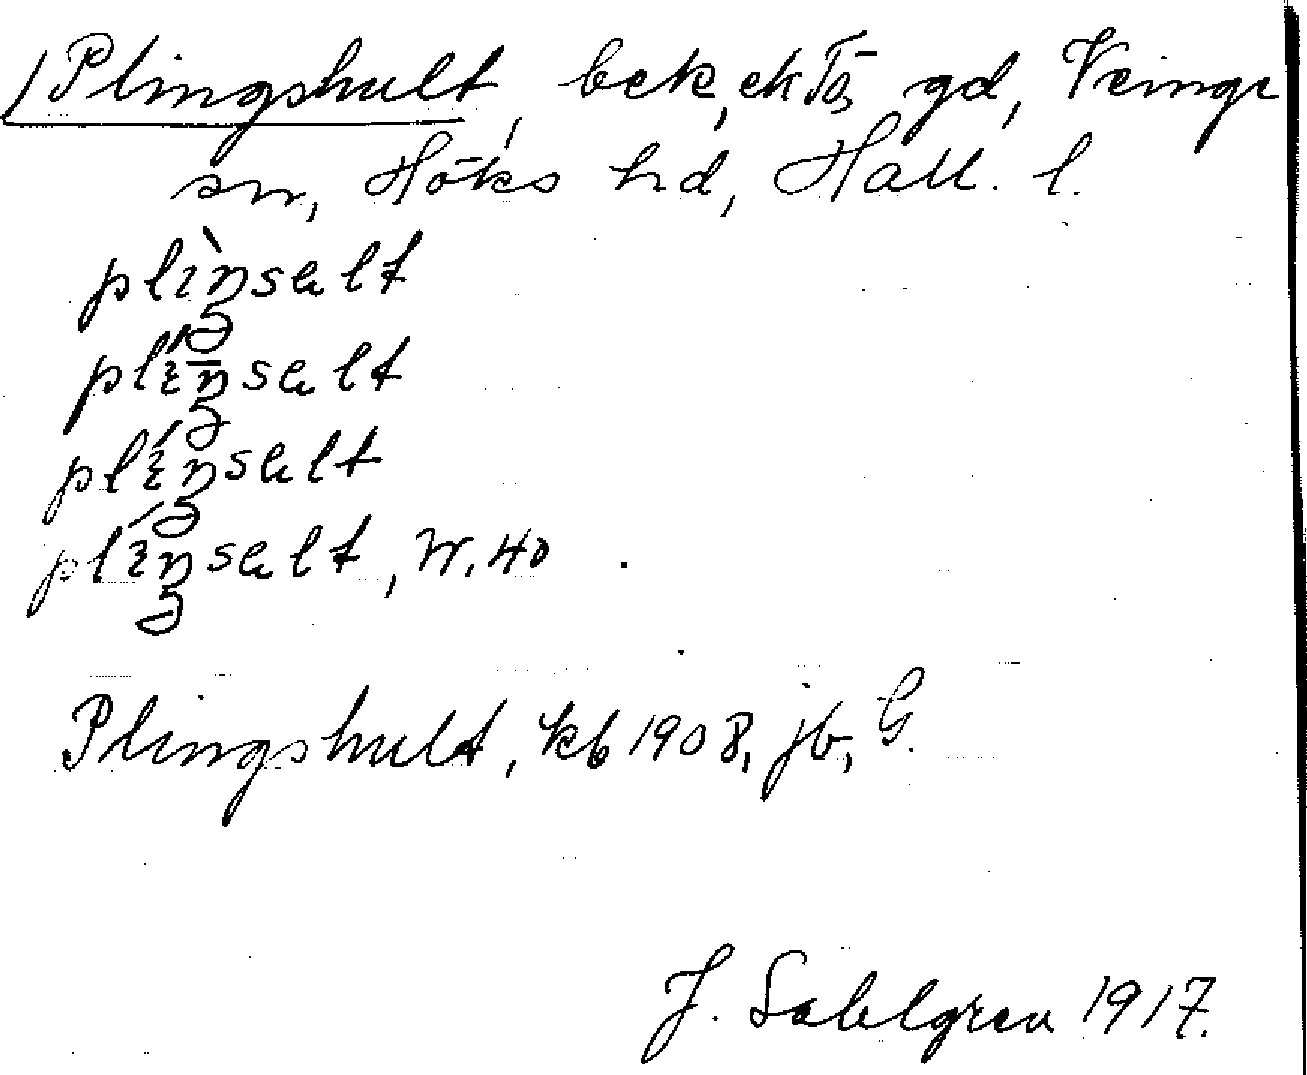 Plingshult, bck, ck Tö, gd, Veinge
sn, Höks hd, Hall. l.
plìŋsalt
plíŋsalt
plíŋsalt
plíŋsalt, W. 40.
Plingshult, kb 1908, jb, G.
J. Sahlgren 1917.